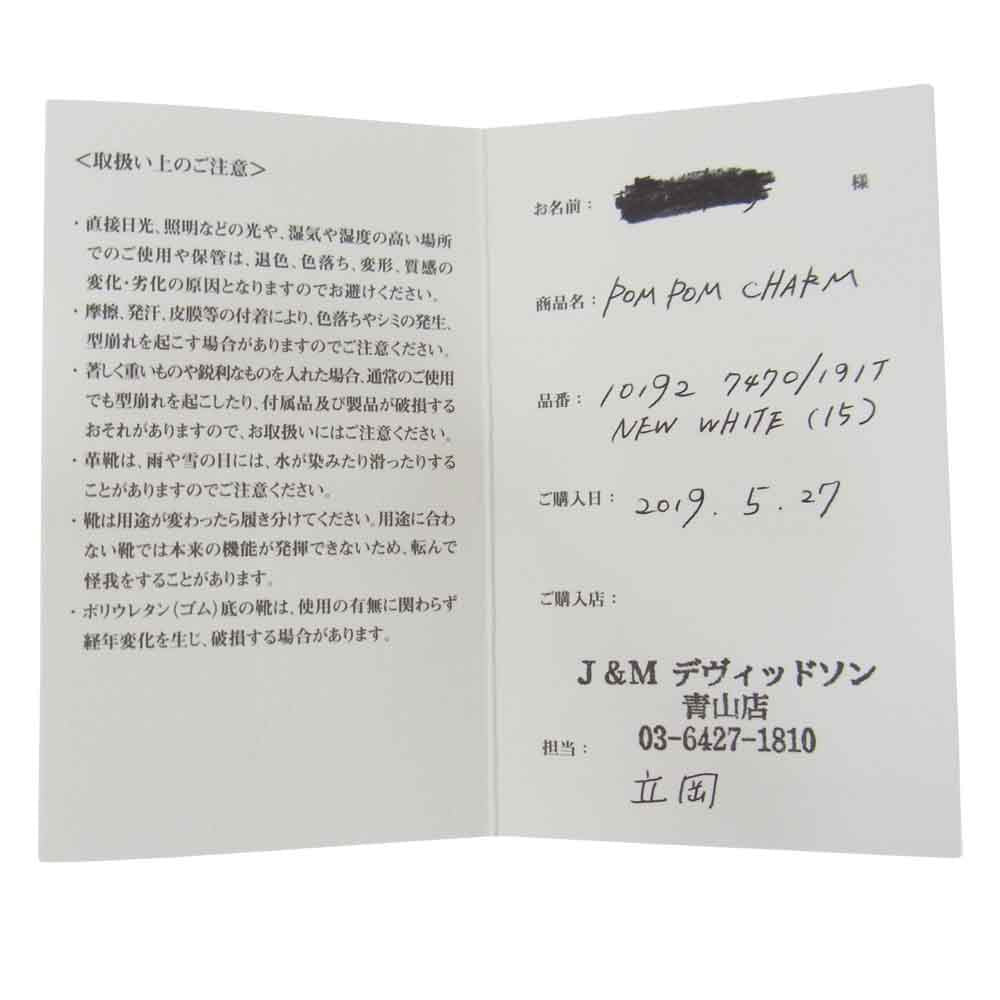 ＜取扱い上のご注意＞
・直接日光、照明などの光や、湿気や湿度の高い場所
でのご使用や保管は、退色、色落ち、変形、質感の
変化・劣化の原因となりますのでお避けください。
・摩擦、発汗、皮膜等の付着により、色落ちやシミの発生、
型崩れを起こす場合がありますのでご注意ください。
・著しく重いものや鋭利なものを入れた場合、通常のご使用
でも型崩れを起こしたり、付属品及び製品が破損する
おそれがありますので、お取扱いにはご注意ください。
・革靴は、雨や雪の日には、水が染みたり滑ったりする
ことがありますのでご注意ください。
・靴は用途が変わったら履き分けてください。用途に合わ
ない靴では本来の機能が発揮できないため、転んで
怪我をすることがあります。
・ポリウレタン（ゴム）底の靴は、使用の有無に関わらず
経年変化を生じ、破損する場合があります。
お名前： 様
商品名： POM POM CHARM
品番： 10192 7470/191T
NEW WHITE (15)
ご購入日： 2019. 5. 27
ご購入店：
J&M デヴィッドソン
青山店
03-6427-1810
担当：
立岡